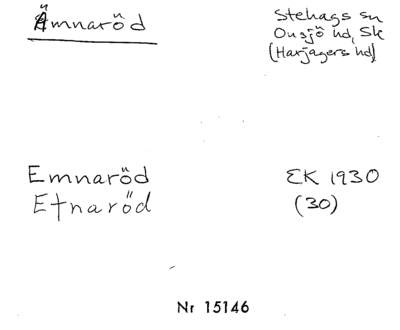 Ämnaröd
Stehags sn
Onsjö hd, Sk
(Harjagers hd)
Emnaröd
EK 1930
Etnaröd
(30)
Nr 15146